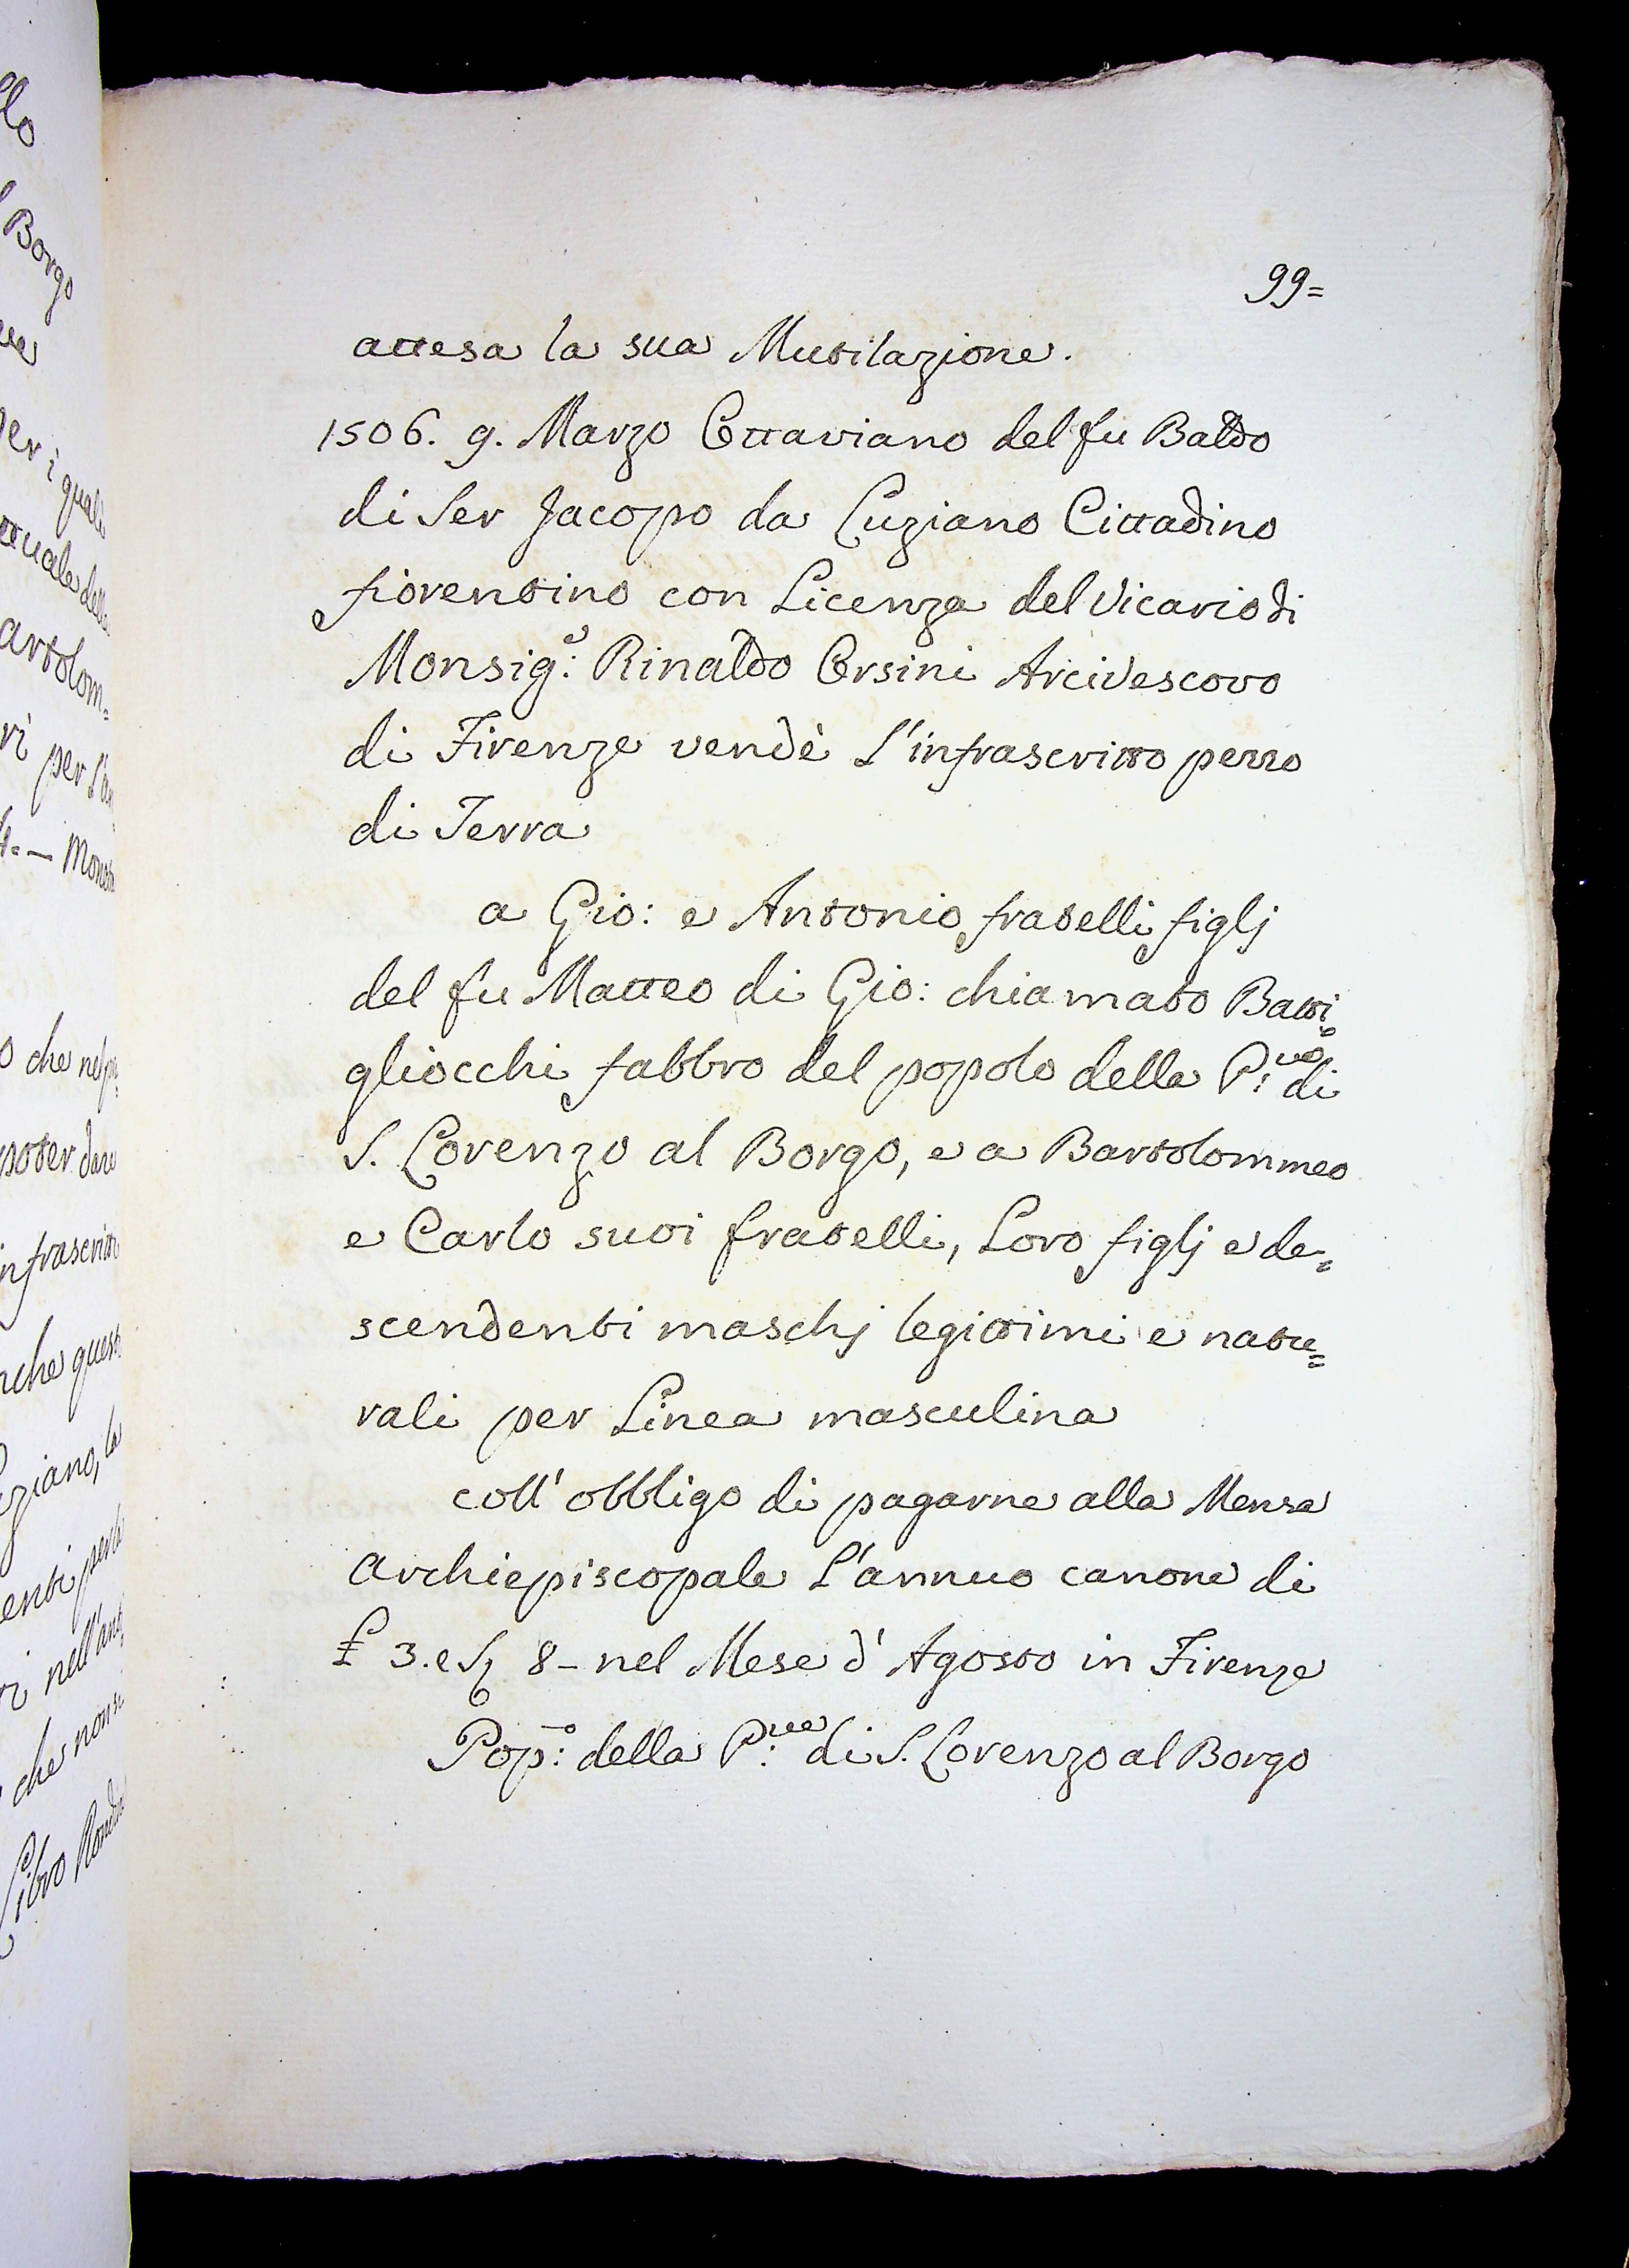 99=
attesa la sua Mutilazione.
1506. 9. Marzo Ottaviano del fu Baldo
di Ser Jacopo da Luziano Cittadino
fiorentino con Licenza del Vicario di
Monsig.e: Rinaldo Orsini Arcivescovo
di Firenze vendè L'infrascritto pezzo
di Terra
a Gio: e Antonio fratelli figlj
del fu Matteo di Gio: chiamato Batti=
gliocchi fabbro del popolo della P:ve di
S. Lorenzo al Borgo, e a Bartolommeo
e Carlo suoi fratelli, Loro figlj e de=
scendenti maschj legittimi e natu=
rali per Linea masculina
coll' obbligo di pagarne alla Mensa
Archiepiscopale L'annuo canone di
£ 3. e S. 8- nel Mese d' Agosto in Firenze
Pop:o della P:ve di S. Lorenzo al Borgo